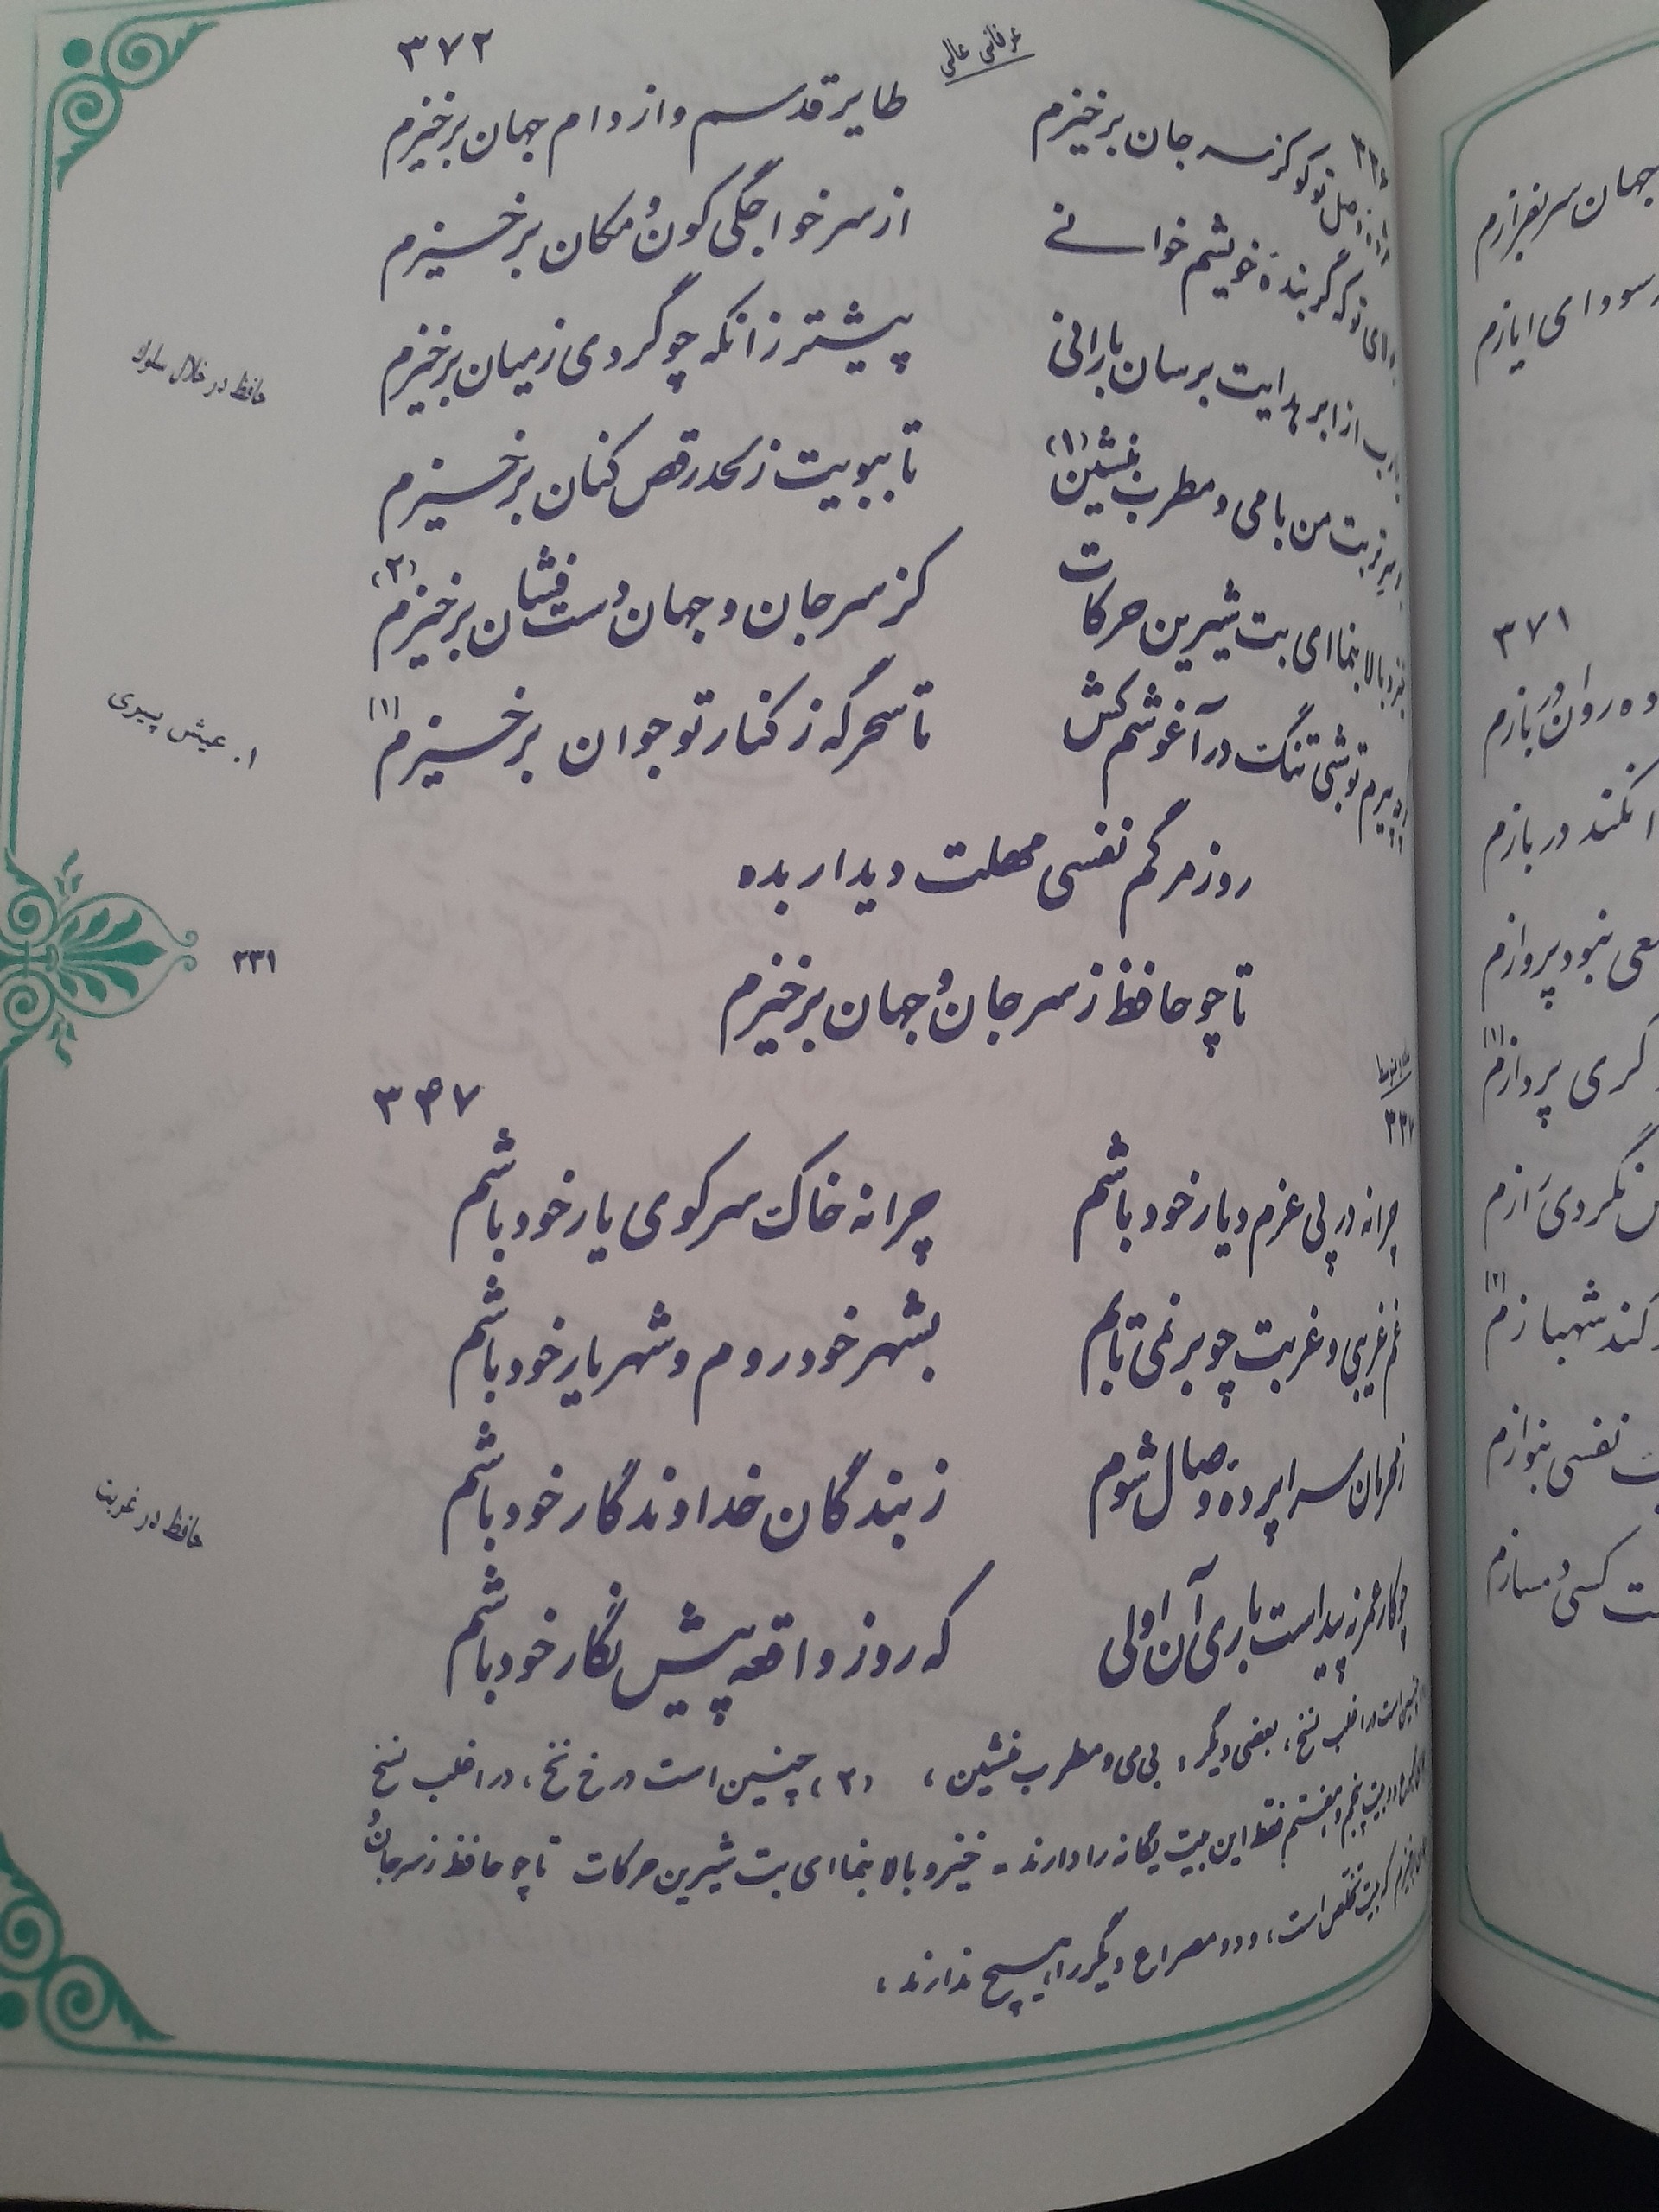 عرفانی عالی
۳۷۲
۳۳۶
مژده وصل تو کو کز سر جان برخیزم طایر قدسم و از دام جهان برخیزم
بولای تو که گر بندهٔ خویشم خوانی از سر خواجگی کون و مکان برخیزم
یارب از ابر هدایت برسان بارانی پیشتر زانکه چو گردی ز میان برخیزم
بر سر تربت من با می و مطرب بنشین (۱) تا ببویت ز لحد رقص کنان برخیزم
خیز و بالا بنما ای بت شیرین حرکات کز سر جان و جهان دست فشان برخیزم (۲)
گرچه پیرم تو شبی تنگ در آغوشم کش تا سحرگه ز کنار تو جوان برخیزم (۱)
روز مرگم نفسی مهلت دیدار بده
تا چو حافظ ز سر جان و جهان برخیزم
حافظ در خلال سلوک
۱. عیش پیری
۲۳۱
۳۳۷
۳۳۷
چرا نه در پی عزم دیار خود باشم چرا نه خاک سر کوی یار خود باشم
غم غریبی و غربت چو بر نمی تابم بشهر خود روم و شهریار خود باشم
ز محرمان سراپردهٔ وصال شوم ز بندگان خداوندگار خود باشم
چو کار عمر نه پیداست باری آن اولی که روز واقعه پیش نگار خود باشم
حافظ در غربت
چنین است در اغلب نسخ، بعضی دیگر: بی می و مطرب بنشین، (۲) چنین است در نخ، در اغلب نسخ
دو بیت پنجم و هفتم فقط این بیت یگانه را دارند - خیز و بالا بنما ای بت شیرین حرکات تا چو حافظ ز سر جان و
برخیزم که بیت تخلص است، و دو مصراع دیگر را هیچ ندارند،
جهان سر بفرازم
سودای ایازم
۳۷۱
بازم
نکند در بازم
نبود پروازم
گری پردازم (۱)
نگردی آزم
کند شهبازم (۲)
نفسی بنوازم
کسی دمسازم